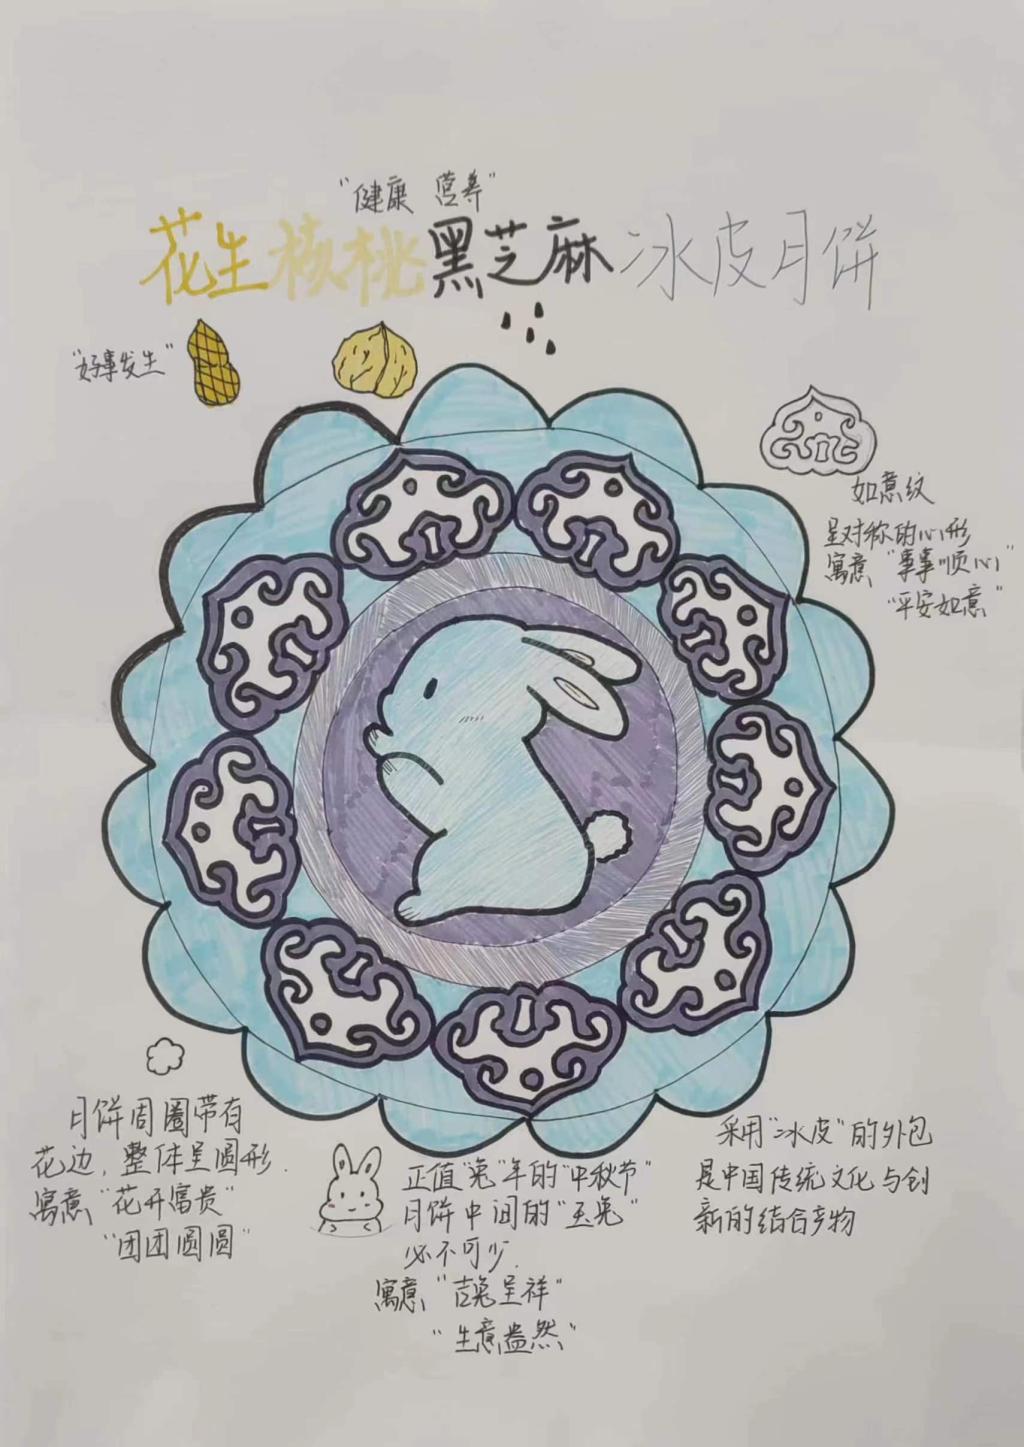 “健康 营养”
花生核桃黑芝麻冰皮月饼
“好事发生”
如意纹
呈对称的心形
寓意“事事顺心”
“平安如意”
月饼周圈带有
花边,整体呈圆形.
寓意“花开富贵”
“团团圆圆”
正值“兔”年的“中秋节”
月饼中间的“玉兔”
必不可少.
寓意“吉兔呈祥”
“生意盎然”
采用“冰皮”的外包
是中国传统文化与创
新的结合产物